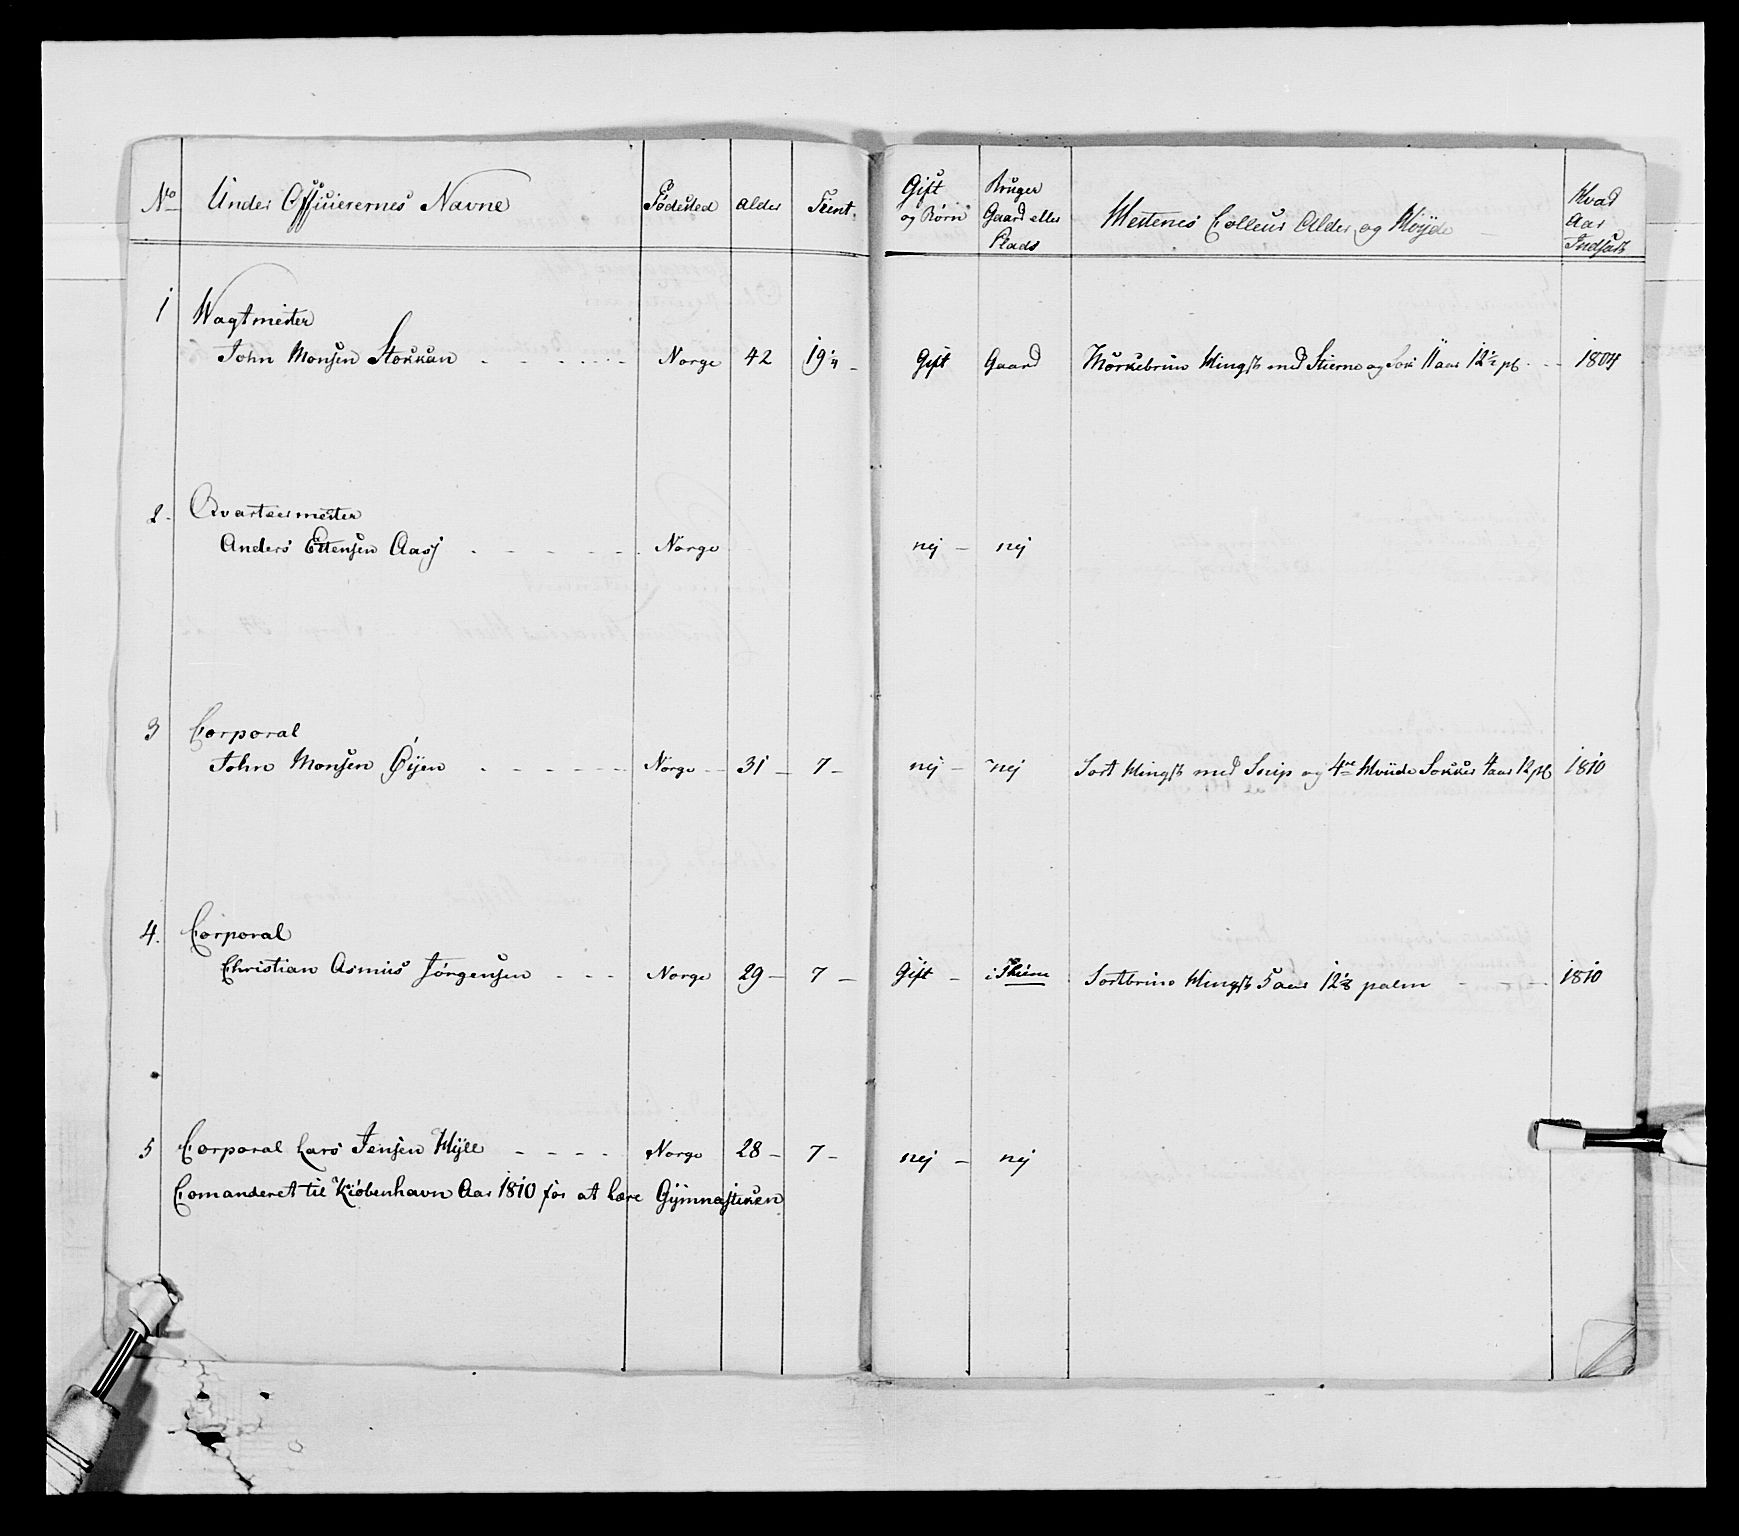 No Under Officierernes Navne Födested Alder Tient Gift og Börn Bruger Gaard eller Plads Hestenes Colleur Alder og Höyde Hvad Aar Indsadt
1 Wagtmester
John Monsen Stokkan - - - - - Norge 42 19 1/4 - Gift Gaard Mörkebrun Hingst med Stierne og 11 aar 12 1/2 pl - - 1804
2. Qvarteermester
Anders Ettensen Aasy - - - - - Norge nej - nej
3 Corporal
John Monsen Öijen - - - - - - Norge - 31 - 7 - nej - nej Sort Hingst med Snip og 4re Hviide Sokker 4 aar 12 pl 1810
4. Corporal
Christian Asmus Jörgensen - - - Norge 29 - 7 - Gift - i Sortbrun Hingst 5 aar 12 1/8 palm - - - 1810
5 Corporal Lars Jensen Hÿll - - - - Norge 28 - 7 - nej - nej
Comanderet til Kiöbenhavn Aar 1810 for at lære Gÿmnastiken